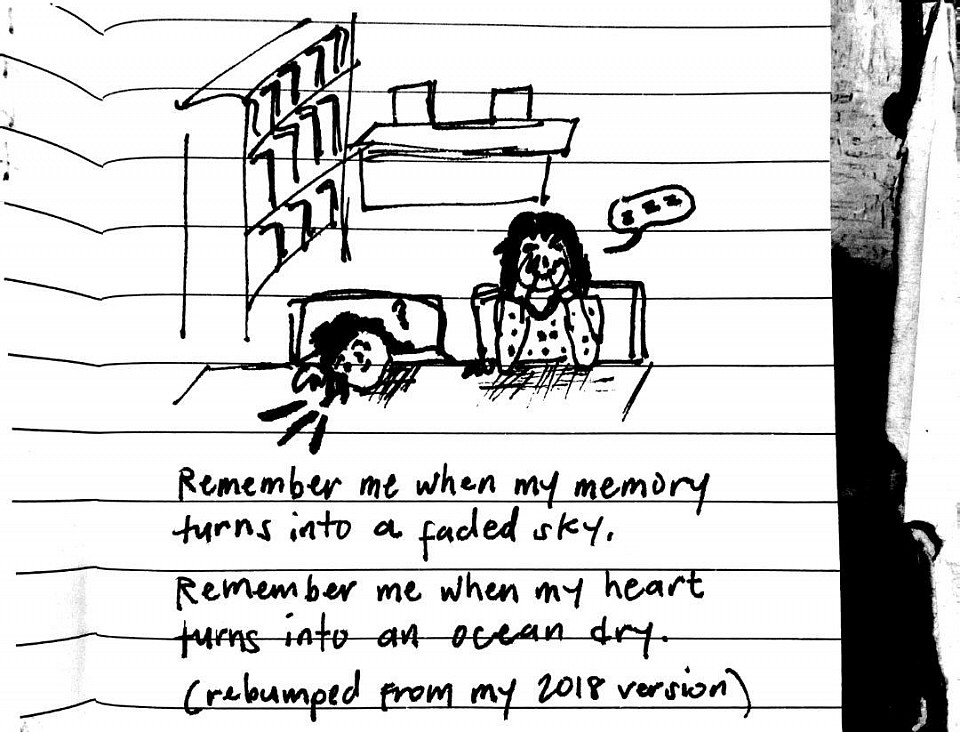 z z z
Remember me when my memory
turns into a faded sky.
Remember me when my heart
turns into an ocean dry.
(rebumped from my 2018 version)